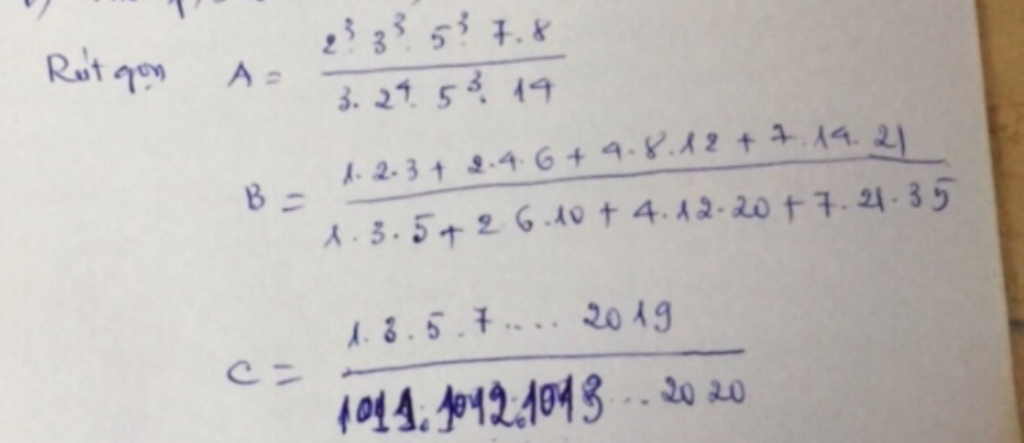 Rút gọn A = \frac{2^3 3^3 . 5^3 7.8}{3. 2^4. 5^3. 14}
B = \frac{1.2.3 + 2.4.6 + 4.8.12 + 7.14.21}{1.3.5 + 2 6.10 + 4.12.20 + 7.21.35}
C = \frac{1.3.5.7.... 2019}{1011.1012.1013... 2020}